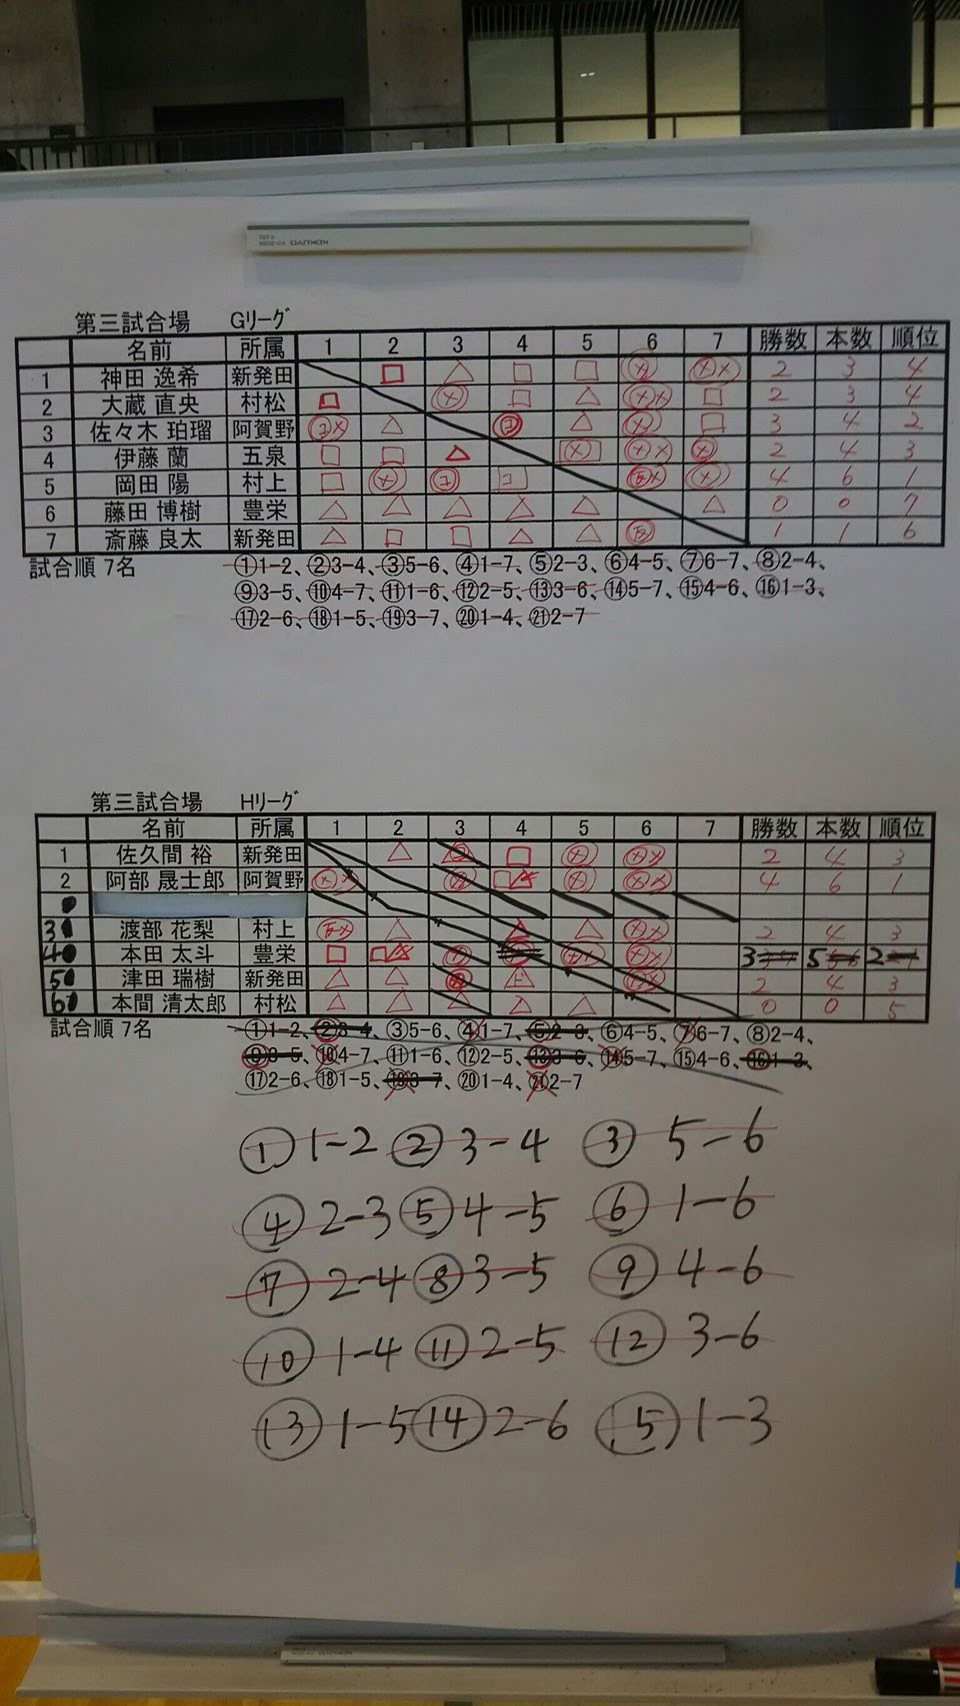 第三試合場 Gリーグ
名前 所属 1 2 3 4 5 6 7 勝数 本数 順位
1 神田 逸希 新発田 □ △ □ □ 2 3 4
2 大蔵 直央 村松 □ □ △ □ 2 3 4
3 佐々木 珀瑠 阿賀野 △ △ □ 3 4 2
4 伊藤 蘭 五泉 □ □ △ 2 4 3
5 岡田 陽 村上 □ 4 6 1
6 藤田 博樹 豊栄 △ △ △ △ △ △ 0 0 7
7 斎藤 良太 新発田 △ □ □ △ △ 1 1 6
試合順 7名 ①1-2、②3-4、③5-6、④1-7、⑤2-3、⑥4-5、⑦6-7、⑧2-4、
⑨3-5、⑩4-7、⑪1-6、⑫2-5、⑬3-6、⑭5-7、⑮4-6、⑯1-3、
⑰2-6、⑱1-5、⑲3-7、⑳1-4、㉑2-7
第三試合場 Hリーグ
名前 所属 1 2 3 4 5 6 7 勝数 本数 順位
1 佐久間 裕 新発田 △ □ 2 4 3
2 阿部 晟士郎 阿賀野 4 6 1
3 渡部 花梨 村上 △ △ △ 2 4 3
4 本田 太斗 豊栄 □ 3 5 2
5 津田 瑞樹 新発田 △ △ 2 4 3
6 本間 清太郎 村松 △ △ △ △ △ 0 0 5
試合順 7名 ①1-2、②3-4、③5-6、④1-7、⑤2-3、⑥4-5、⑦6-7、⑧2-4、
⑨3-5、⑩4-7、⑪1-6、⑫2-5、⑬3-6、⑭5-7、⑮4-6、⑯1-3、
⑰2-6、⑱1-5、⑲3-7、⑳1-4、㉑2-7
① 1-2 ② 3-4 ③ 5-6
④ 2-3 ⑤ 4-5 ⑥ 1-6
⑦ 2-4 ⑧ 3-5 ⑨ 4-6
⑩ 1-4 ⑪ 2-5 ⑫ 3-6
⑬ 1-5 ⑭ 2-6 ⑮ 1-3